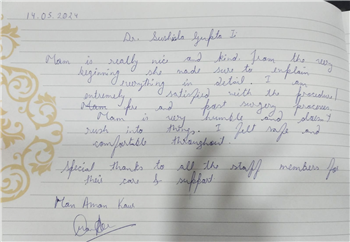 14.05.2024
Dr. Sushila Gupta I
Mam is really nice and kind from the very
beginning she made sure to explain
everything in detail. I am
extremely satisfied with the procedure!
Mam pre and post surgery process.
Mam is very humble and doesn't
rush into things. I felt safe and
comfortable throughout.
Special thanks to all the staff members for
their care & support
Aman Kaur